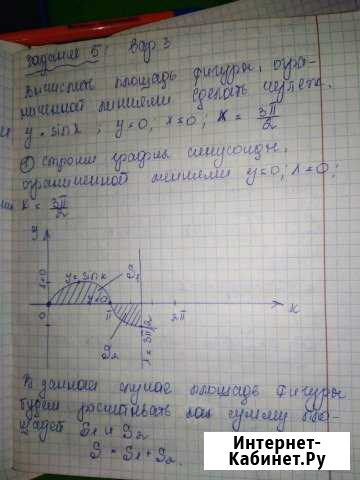 Задание 5; Вар. 3
Вычислить площадь фигуры, огра-
ниченной линиями сделать чертеж.
y = sin x; y=0; x=0; x = 3π/2
① строим график синусоиды,
ограниченной линиями y=0; x=0;
x = 3π/2
y
x=0
y = sin x
S1
y=0
0
π
2π
x
S2
x = 3π/2
В данном случае площадь фигуры
будем рассматривать как сумму пло-
щадей S1 и S2
S = S1 + S2.
Интернет-
Кабинет.Ру